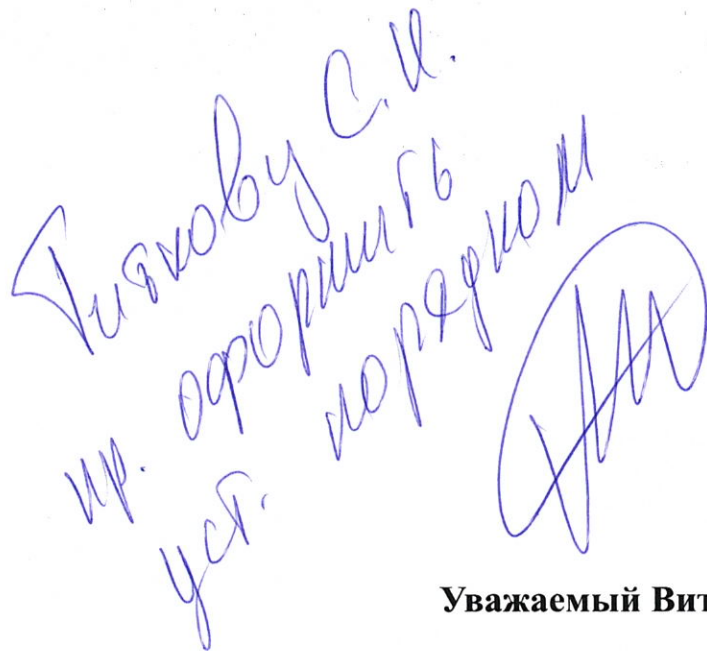 Титкову С.И.
пр. оформить
уст. порядком
Уважаемый Вит